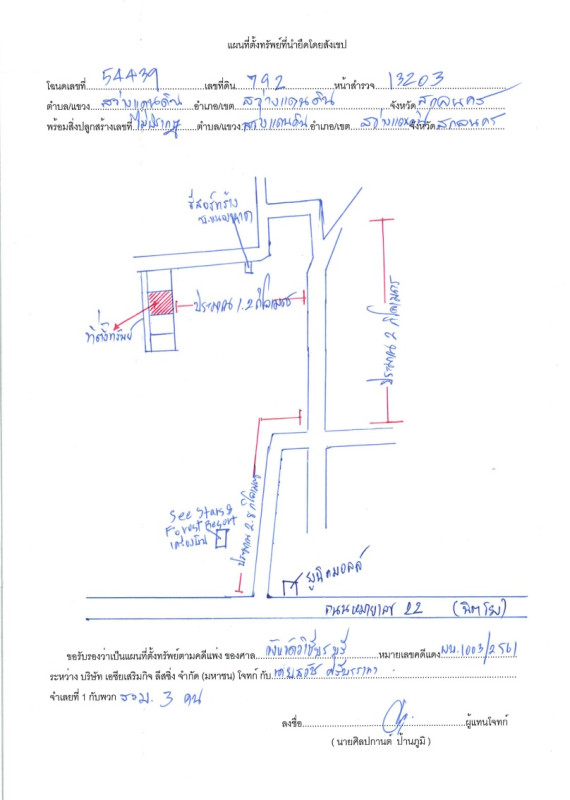 แผนที่ตั้งทรัพย์ที่นำยึดโดยสังเขป
โฉนดเลขที่ 54439 เลขที่ดิน 792 หน้าสำรวจ 13203
ตำบล/แขวง สว่างแดนดิน อำเภอ/เขต สว่างแดนดิน จังหวัด สกลนคร
พร้อมสิ่งปลูกสร้างเลขที่ ไม่ปรากฏ ตำบล/แขวง สว่างแดนดิน อำเภอ/เขต สว่างแดนดิน จังหวัด สกลนคร
รีสอร์ทร้าง
ประมาณ 1.2 กิโลเมตร
ประมาณ 2 กิโลเมตร
ที่ตั้งทรัพย์
See Stars &
Forest Resort
ประมาณ 2.8 กิโลเมตร
ยูนิคมอลล์
ถนนหมายเลข 22 (นิตโย)
ขอรับรองว่าเป็นแผนที่ตั้งทรัพย์ตามคดีแพ่ง ของศาล หมายเลขคดีแดง ผบ.1003/2561
ระหว่าง บริษัท เอเซียเสริมกิจ ลีสซิ่ง จำกัด (มหาชน) โจทก์ กับ
จำเลยที่ 1 กับพวก รวม 3 คน
ลงชื่อ ผู้แทนโจทก์
( นายศิลปกานต์ ป้านภูมิ )